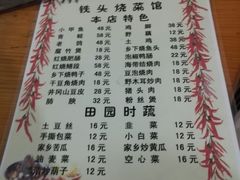 铁头烧菜馆
本店特色
小甲鱼 48元
鸡脚 38元
青鱼 58元
野藕 12元
老鸭 48元
土鸡 48元
腐竹煲 18元
乡下烧鱼头 48元
红烧肥肠 28元
泡椒鸭肠 28元
红烧鳝段 58元
海带结烧肉 28元
乡下鸭子 38元
豆泡烧肉 28元
干豆烧肉 28元
野木耳炒肉 28元
井冈山豆皮 28元
猪头肉 28元
肺 28元
粉丝煲 18元
田园时蔬
土豆丝 16元
韭菜 12元
手撕包菜 12元
小白菜 12元
家乡苦瓜 16元
家乡炒黄瓜 16元
油麦菜 16元
空心菜 16元
清炒茄子 16元